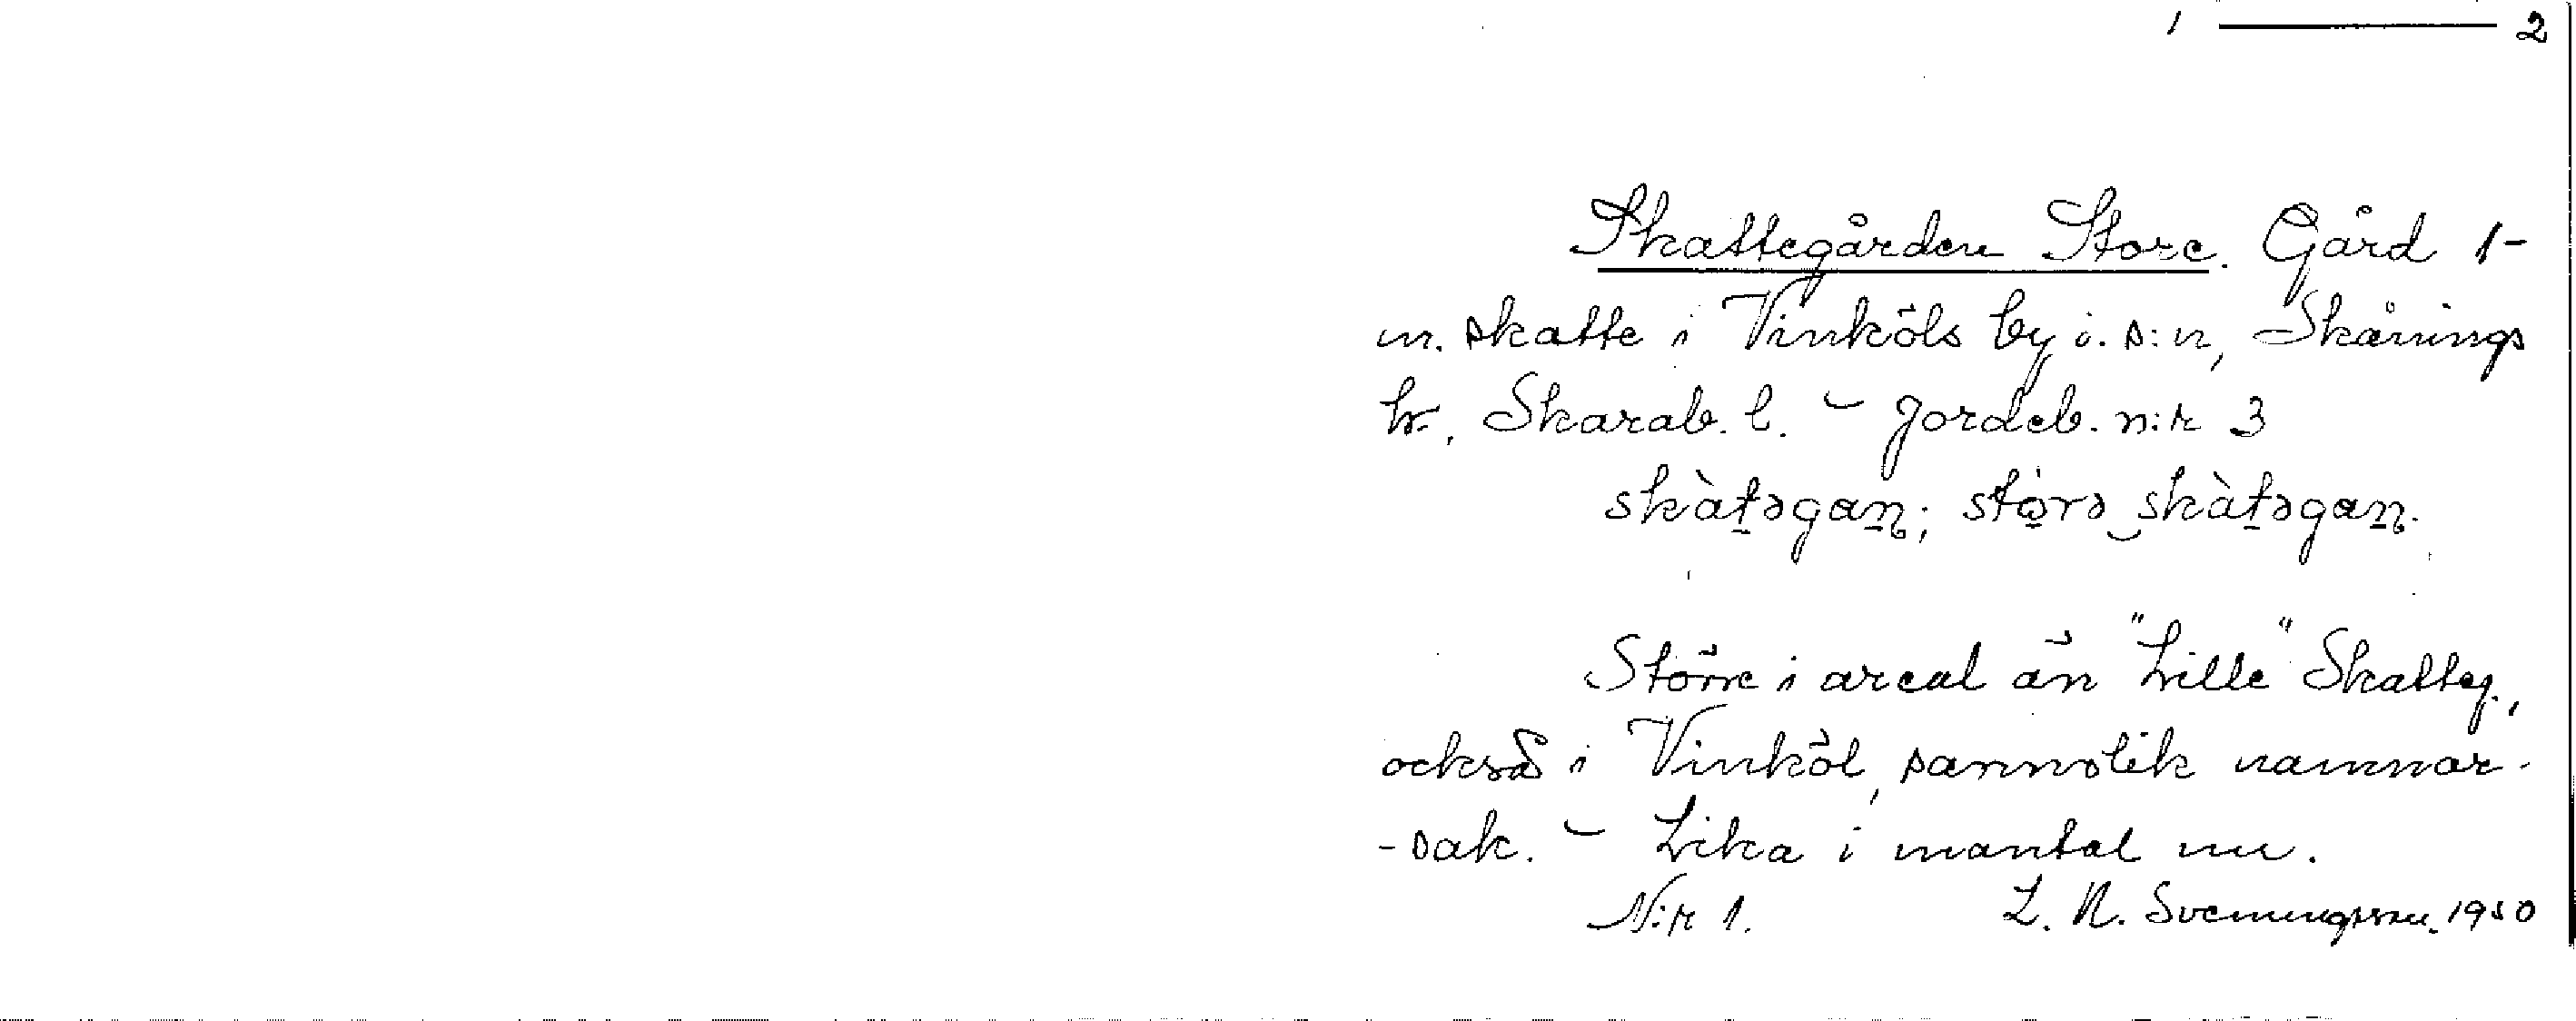 1 ——— 2
Skattegården Store. Gård 1-
m. skatte i Vinköls by o. s:n, Skånings
hr., Skarab. l. – Jordeb. n:r 3
skàt̠əgan̠; stò̠rə‿skàt̠əgan̠.
Större i areal än "Lille" Skatteg.,
också i Vinköl, sannolik namnor-
-sak. – Lika i mantal nu.
N:r 1. L. N. Svenungsson. 1950